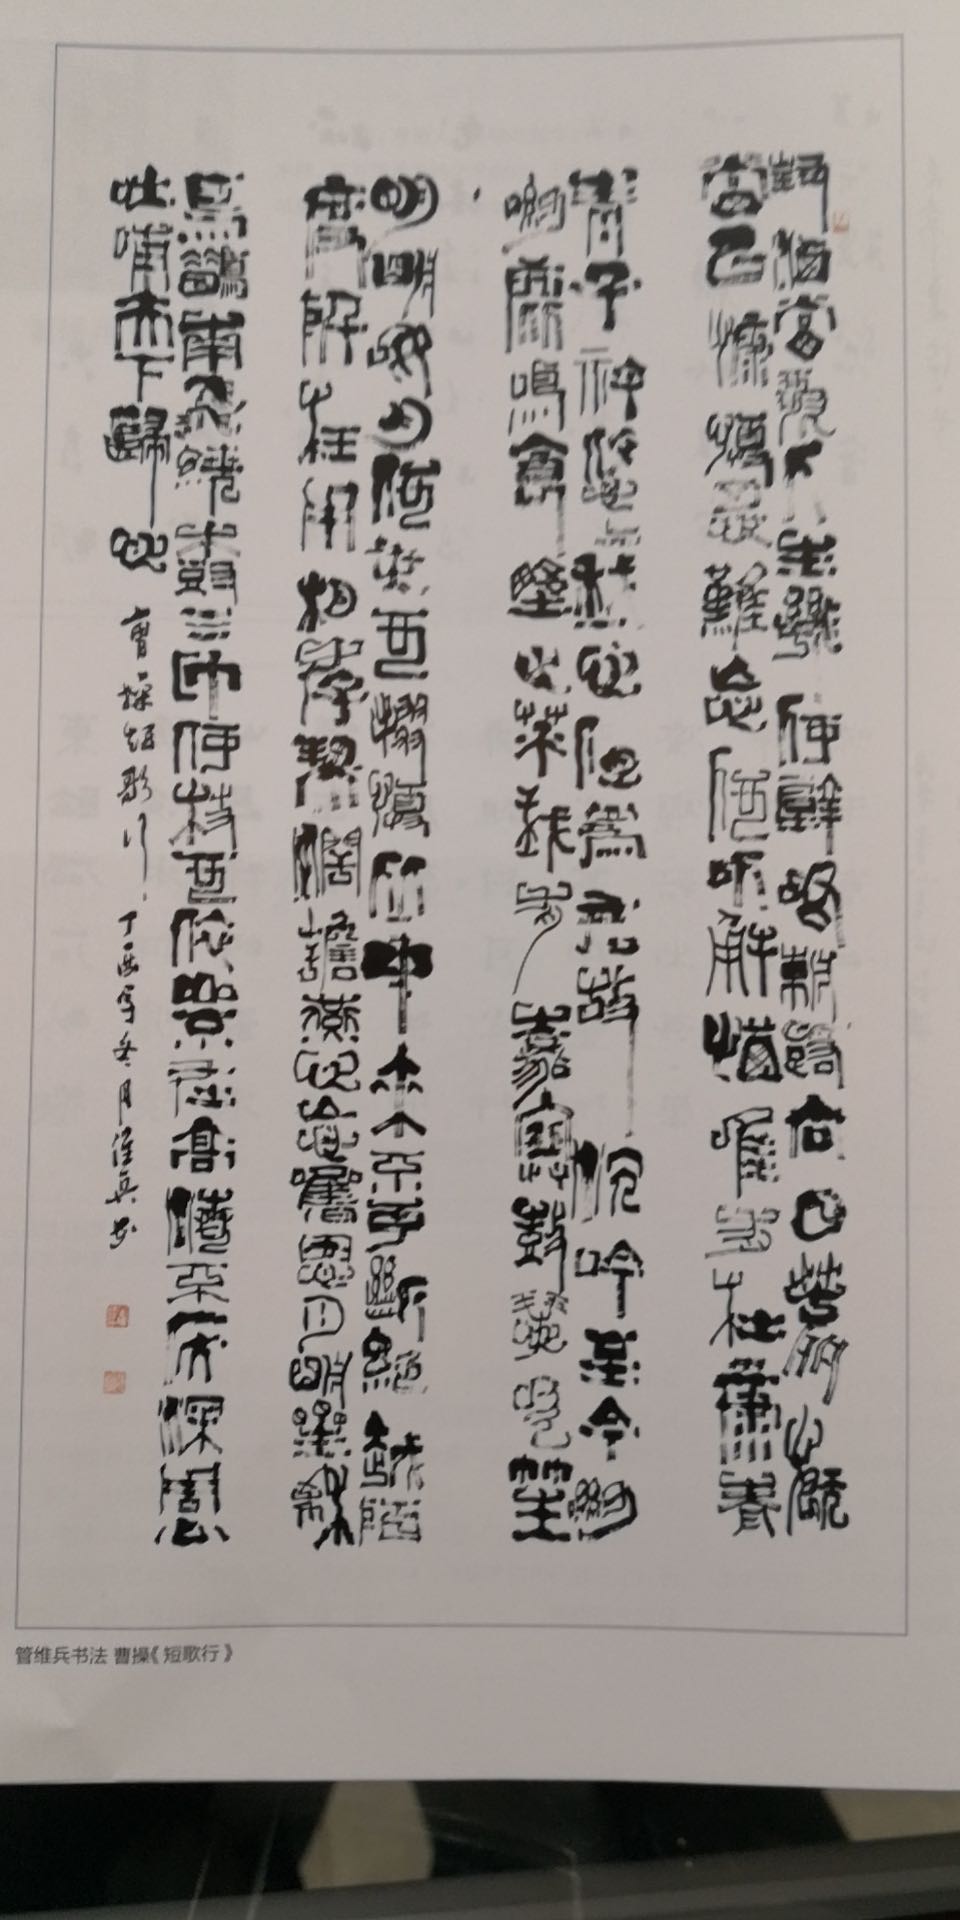 對酒當歌人生幾何譬如朝露去日苦多慨
當以慷憂思難忘何以解憂唯有杜康青
青子衿悠悠我心但為君故沉吟至今呦
呦鹿鳴食野之苹我有嘉賓鼓瑟吹笙
明明如月何時可掇憂從中來不可斷絕越陌
度阡枉用相存契闊談讌心念舊恩月明星稀
烏鵲南飛繞樹三匝何枝可依山不厭高海不厭深周公
吐哺天下歸心 曹操短歌行 丁酉年冬月維兵書
管维兵书法 曹操《短歌行》